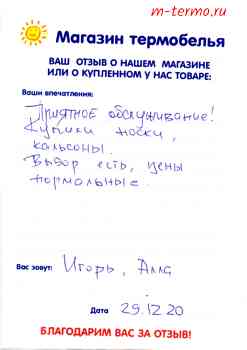 m-termo.ru
Магазин термобелья
ВАШ ОТЗЫВ О НАШЕМ МАГАЗИНЕ
ИЛИ О КУПЛЕННОМ У НАС ТОВАРЕ:
Ваши впечатления:
Приятное обслуживание!
Купили носки,
кальсоны.
Выбор есть, цены
нормальные.
Вас зовут: Игорь, Алла
Дата 29.12.20
БЛАГОДАРИМ ВАС ЗА ОТЗЫВ!